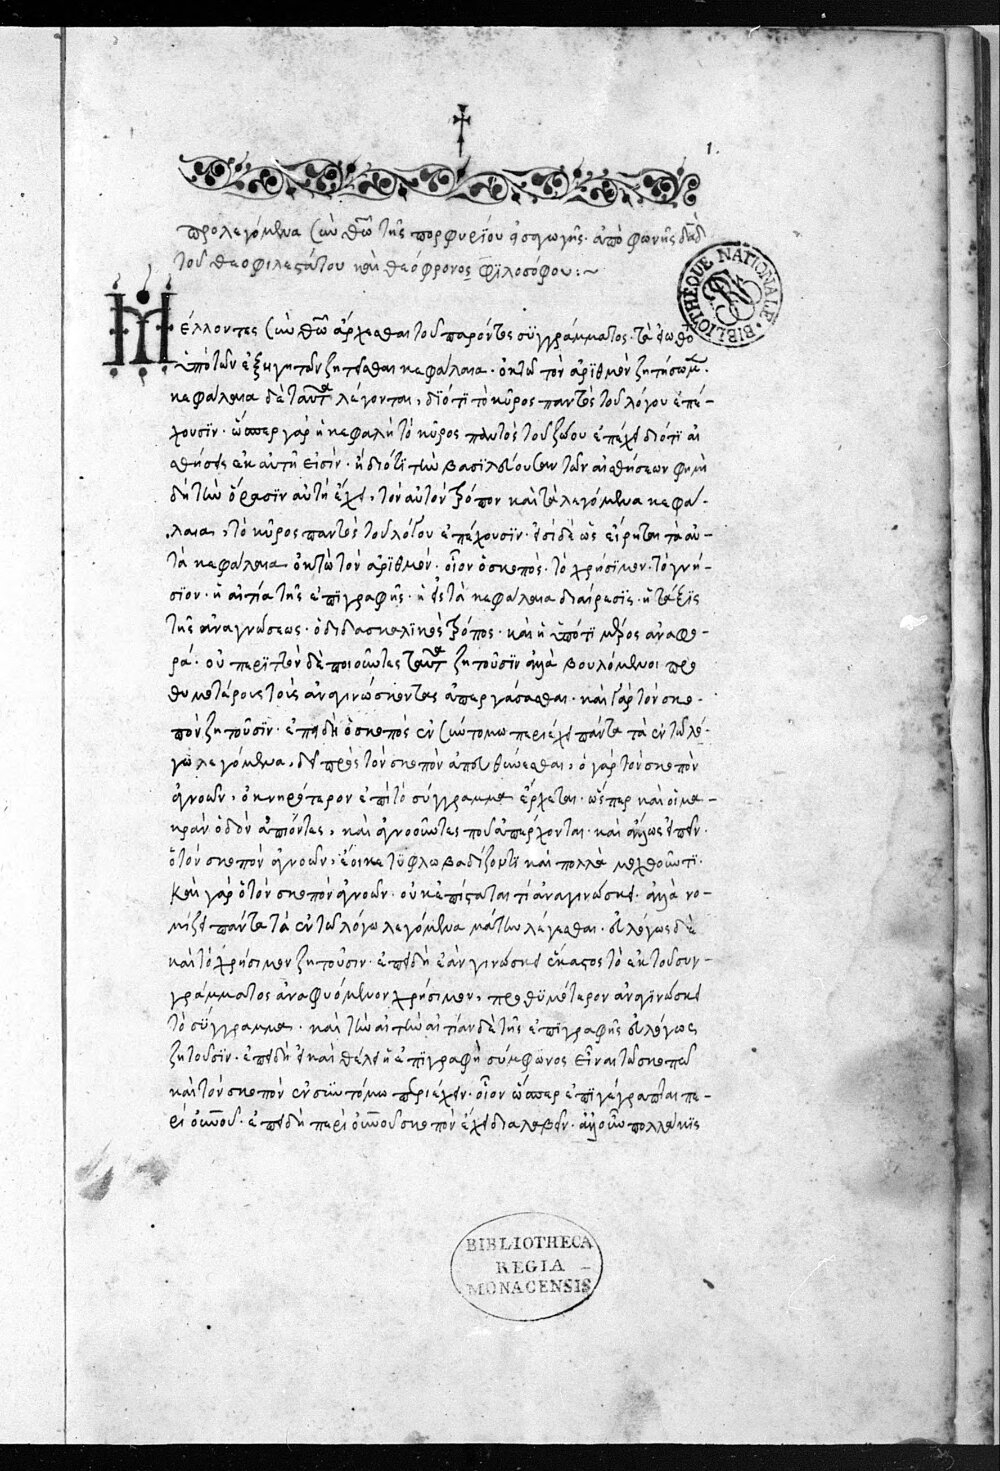 1.
προλεγόμενα σὺν θεῷ τῆς πορφυρίου εἰσαγωγῆς· ἀπὸ φωνῆς δαδ
τοῦ θεοφιλεστάτου καὶ θεόφρονος φιλοσόφου:~
BIBLIOTHÈQUE NATIONALE
Μέλλοντες σὺν θεῷ ἄρχεσθαι τοῦ παρόντος συγγράμματος· τὰ εἰωθότα
ὑπὸ τῶν ἐξηγητῶν ζητεῖσθαι κεφάλαια· ὀκτὼ τὸν ἀριθμὸν ζητήσωμεν·
κεφάλαια δὲ ταῦτα λέγονται, διότι τὸ κῦρος παντὸς τοῦ λόγου ἐπέ-
χουσιν· ὥσπερ γὰρ ἡ κεφαλὴ τὸ κῦρος παντὸς τοῦ ζώου ἐπέχει διότι αἱ
αἰσθήσεις ἐκ αὐτῇ εἰσίν· ἢ διότι τὴν βασιλεύουσαν τῶν αἰσθήσεων φημὶ
δὴ τὴν ὅρασιν αὐτὴ ἔχει, τὸν αὐτὸν τρόπον καὶ τὰ λεγόμενα κεφά-
λαια, τὸ κῦρος παντὸς τοῦ λόγου ἐπέχουσιν· εἰσὶ δὲ ὡς εἴρηται τὰ αὐ-
τὰ κεφάλαια ὀκτὼ τὸν ἀριθμόν· οἷον ὁ σκοπός· τὸ χρήσιμον· τὸ γνή-
σιον· ἡ αἰτία τῆς ἐπιγραφῆς· ἡ εἰς τὰ κεφάλαια διαίρεσις· ἡ τάξις
τῆς ἀναγνώσεως· ὁ διδασκαλικὸς τρόπος· καὶ ἡ ὑπό τι μέρος ἀναφο-
ρά· οὐ περιττὸν δὲ ποιοῦντες ταῦτα ζητοῦσιν ἀλλὰ βουλόμενοι προ
θυμοτέρους τοὺς ἀναγινώσκοντας ἀπεργάσασθαι· καὶ γὰρ τὸν σκο-
πὸν ζητοῦσιν· ἐπειδὴ ὁ σκοπὸς ἐν συντόμω περιέχει πάντα τὰ ἐν τῶ λό-
γω λεγόμενα, δεῖ πρὸς τὸν σκοπὸν ἀπευθύνεσθαι, ὁ γὰρ τὸν σκοπὸν
ἀγνοῶν, ὀκνηρότερον ἐπὶ τὸ σύγγραμμα ἔρχεται· ὥσπερ καὶ οἱ μα-
κρὰν ὁδὸν ἀπιόντες, καὶ ἀγνοοῦντες ποῦ ἀπέρχονται· καὶ ἄλλως εἰπεῖν·
ὁ τὸν σκοπὸν ἀγνοῶν, ἔοικε τυφλῶ βαδίζοντι καὶ πολλὰ μοχθοῦντι·
Καὶ γὰρ ὁ τὸν σκοπὸν ἀγνοῶν· οὐκ ἐπίσταται τί ἀναγινώσκει· ἀλλὰ νο-
μίζει πάντα τὰ ἐν τῶ λόγω λεγόμενα μάτην λέγεσθαι· εὐλόγως δὲ
καὶ τὸ χρήσιμον ζητοῦσιν· ἐπειδὴ ἐὰν γινώσκει ἕκαστος τὸ ἐκ τοῦ συγ-
γράμματος ἀναφυόμενον χρήσιμον, προθυμότερον ἀναγινώσκει
τὸ σύγγραμμα· καὶ τὴν αἰτίαν δὲ τῆς ἐπιγραφῆς εὐλόγως
ζητοῦσιν· ἐπειδὴ καὶ θέλει ἡ ἐπιγραφὴ σύμφωνος εἶναι τῶ σκοπῶ
καὶ τὸν σκοπὸν ἐν συντόμω περιέχειν· οἷον ὥσπερ ἐπιγέγραπται πε-
ρὶ οὐρανοῦ· ἐπειδὴ περὶ οὐρανοῦ σκοπὸν ἔχει διαλαβεῖν· ἀλλ' οὖν πολλάκις
BIBLIOTHECA
REGIA
MONACENSIS